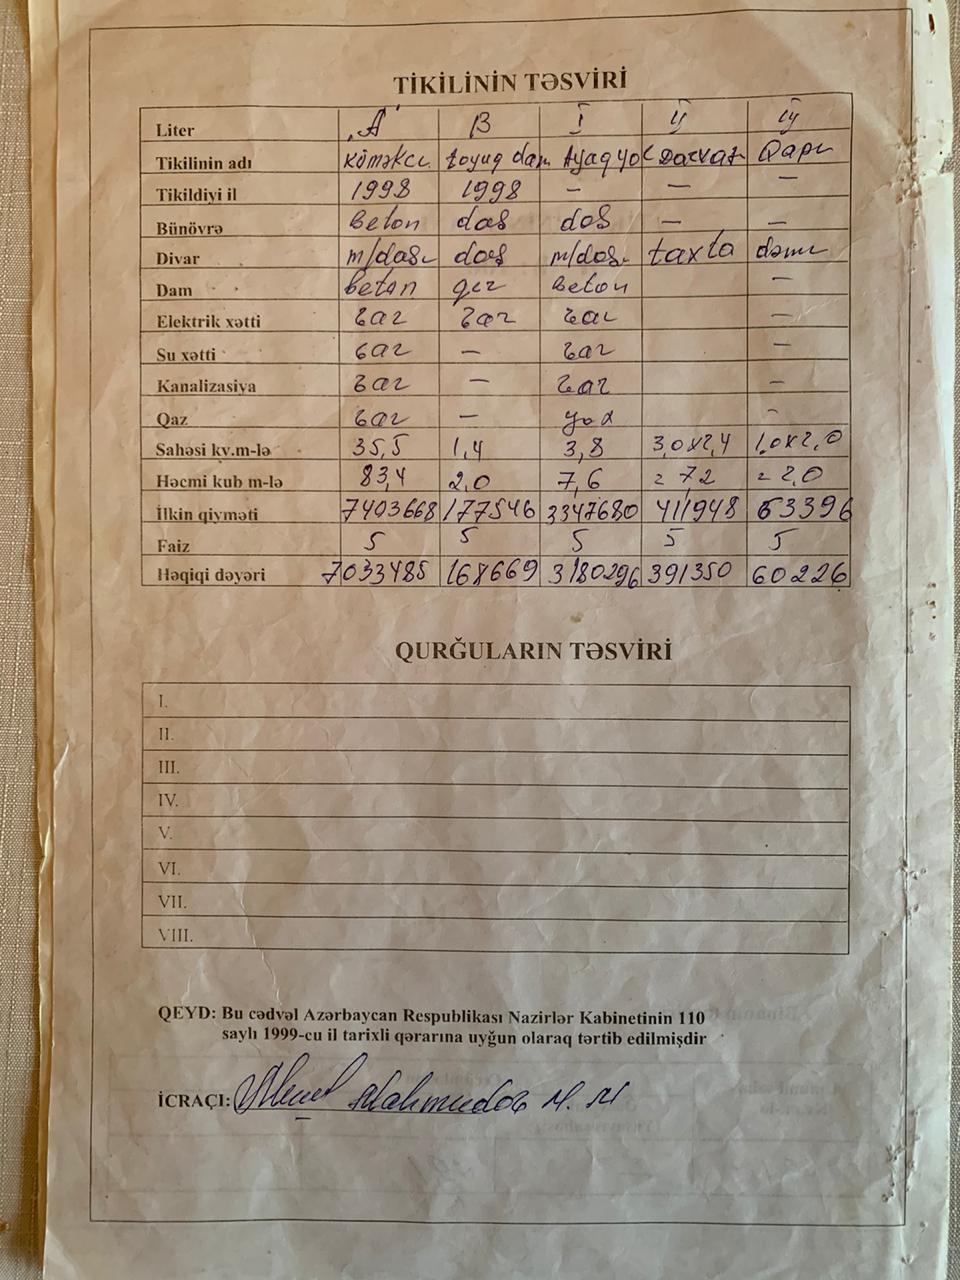 TİKİLİNİN TƏSVİRİ
Liter "A" B I II IV
Tikilinin adı köməkçi toyuq damı Ayaqyol Darvaz Qapı
Tikildiyi il 1998 1998 — — —
Bünövrə beton daş daş — —
Divar m/daşı daş m/daşı taxta dəmir
Dam beton qır beton —
Elektrik xətti var var var —
Su xətti var — var —
Kanalizasiya var — var —
Qaz var — yox -
Sahəsi kv.m-lə 35,5 1,4 3,8 3,0x2,4 1,0x2,0
Həcmi kub m-lə 83,4 2,0 7,6 = 72 = 2,0
İlkin qiyməti 7403668 177546 3347680 411948 63396
Faiz 5 5 5 5 5
Həqiqi dəyəri 7033485 168669 3180296 391350 60226
QURĞULARIN TƏSVİRİ
I.
II.
III.
IV.
V.
VI.
VII.
VIII.
QEYD: Bu cədvəl Azərbaycan Respublikası Nazirlər Kabinetinin 110
saylı 1999-cu il tarixli qərarına uyğun olaraq tərtib edilmişdir
İCRAÇI: Mahmudov M. M